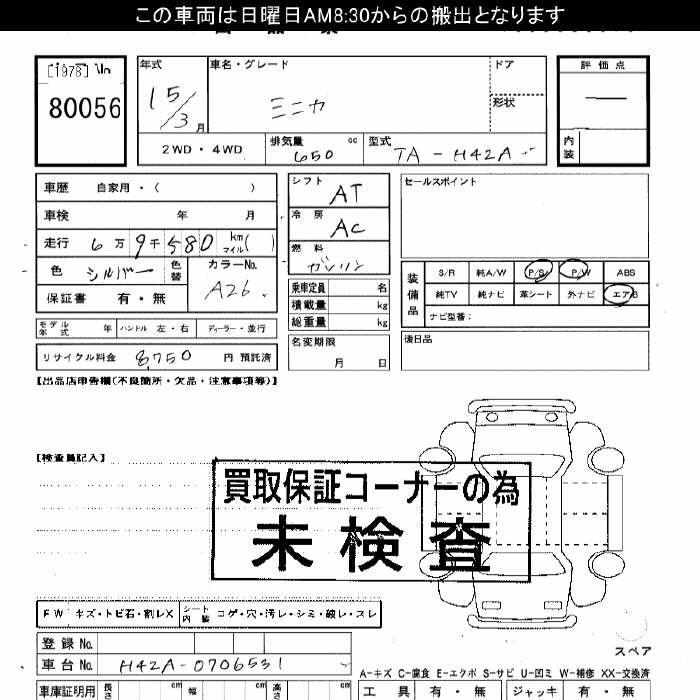 この車両は日曜日AM8:30からの搬出となります
[1978] \In
80056
年式
15/3月
車名・グレード
ミニカ
ドア
形状
評価点
内装
2WD・4WD
排気量 650 cc
型式 TA-H42A
車歴 自家用・( )
車検 年 月
走行 6万9千580 km マイル( )
色 シルバー 色替
カラーNo. A26
保証書 有・無
モデル年式 年 ハンドル 左・右 ディーラー・並行
リサイクル料金 8,750 円 預託済
シフト AT
冷房 AC
燃料 ガソリン
乗車定員 名
積載量 kg
総重量 kg
名変期限
月 日
セールスポイント
装備品
S/R 純A/W P/S P/W ABS
純TV 純ナビ 革シート 外ナビ エアB
ナビ型番:
後日品
【出品店申告欄(不良箇所・欠品・注意事項等)】
【検査員記入】
買取保証コーナーの為
未検査
FW キズ・トビ石・割レX シート内装 コゲ・穴・汚レ・シミ・破レ・スレ
登録No.
車台No. H42A-0706531
スペア
A-キズ C-腐食 E-エクボ S-サビ U-凹ミ W-補修 XX-交換済
車庫証明用 長さ cm 幅 cm 高さ cm
工具 有・無 ジャッキ 有・無